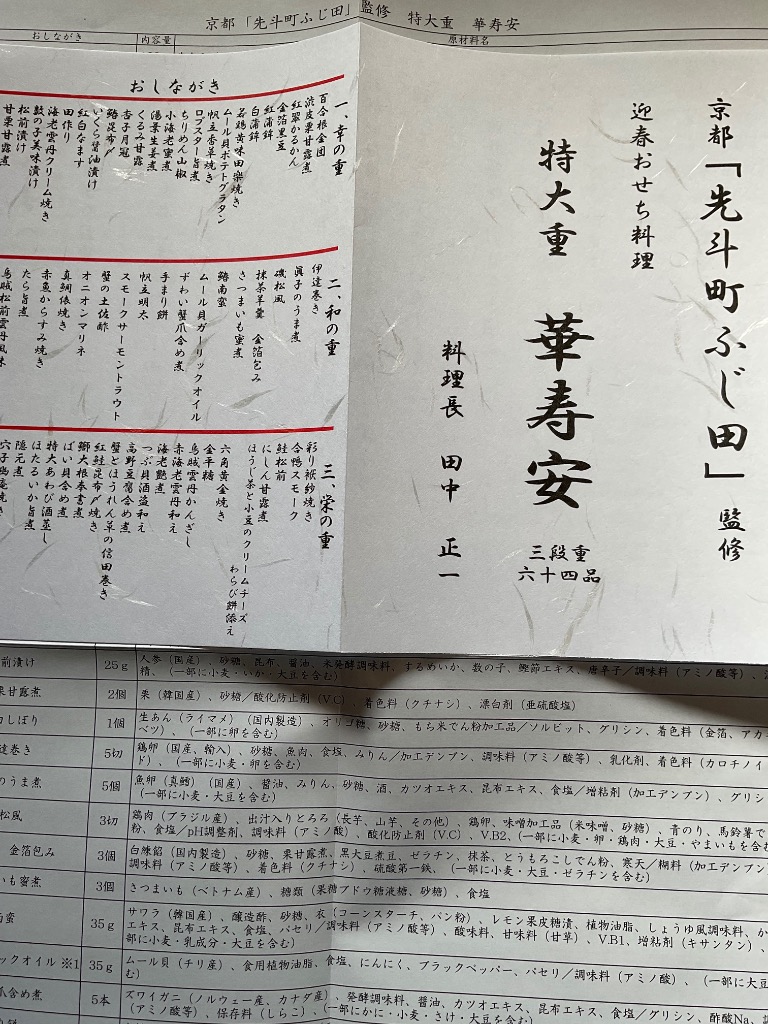 京都「先斗町ふじ田」監修 特大重 華寿安
おしながき 内容量 原材料名
京都「先斗町ふじ田」監修
迎春おせち料理
特大重 華寿安
三段重
六十四品
料理長 田中 正一
おしながき
一、幸の重
百合根金団
渋皮栗甘露煮
紅翠かるかん
金箔黒豆
紅蒲鉾
白蒲鉾
若鶏黄味田楽焼き
ムール貝ポテトグラタン
帆立香草焼き
ロブスター旨煮
ちりめん山椒
小海老蜜煮
湯葉生姜煮
くるみ甘露
杏子月冠
鰆昆布〆
いくら醤油漬け
紅白なます
田作り
海老雲丹クリーム焼き
数の子美味漬け
松前漬け
甘栗甘露煮
二、和の重
伊達巻き
真子のうま煮
磯松風
抹茶羊羹 金箔包み
さつまいも蜜煮
鰆南蛮
ムール貝ガーリックオイル
ずわい蟹爪含め煮
手まり餅
帆立明太
スモークサーモントラウト
蟹の土佐酢
オニオンマリネ
真鯛俵焼き
赤魚からすみ焼き
たら旨煮
烏賊松前雲丹風味
三、栄の重
彩り袱紗焼き
合鴨スモーク
鮭松前
にしん甘露煮
ほうじ茶と小豆のクリームチーズ
わらび餅添え
六角黄金焼き
金平糖
烏賊雲丹かんざし
赤海老雲丹和え
海老艶煮
つぶ貝酒盗和え
高野豆腐含め煮
蟹とほうれん草の信田巻き
紅鮭昆布〆焼き
鰤大根奉書煮
ばい貝含め煮
特大あわび酒蒸し
ほたるいか旨煮
隠元煮
前漬け 25g 人参（国産）、砂糖、昆布、醤油、米発酵調味料、するめいか、数の子、鰹節エキス、唐辛子／調味料（アミノ酸等）、
精、（一部に小麦・いか・大豆を含む）
栗甘露煮 2個 栗（韓国産）、砂糖／酸化防止剤（V.C）、着色料（クチナシ）、漂白剤（亜硫酸塩）
しぼり 1個 生あん（ライマメ）（国内製造）、オリゴ糖、砂糖、もち米でん粉加工品／ソルビット、グリシン、着色料（金箔、アカ
ベツ）、（一部に卵を含む）
達巻き 5切 鶏卵（国産、輸入）、砂糖、魚肉、食塩、みりん／加工デンプン、調味料（アミノ酸等）、乳化剤、着色料（カロチノイ
ド）、（一部に小麦・卵を含む）
のうま煮 5個 魚卵（真鱈）（国産）、醤油、みりん、砂糖、酒、カツオエキス、昆布エキス、食塩／増粘剤（加工デンプン）、グリシ
（一部に小麦・大豆を含む）
松風 3切 鶏肉（ブラジル産）、出汁入りとろろ（長芋、山芋、その他）、鶏卵、味噌加工品（米味噌、砂糖）、青のり、馬鈴薯で
粉、食塩／pH調整剤、調味料（アミノ酸）、酸化防止剤（V.C）、V.B2、（一部に小麦・卵・鶏肉・大豆・やまいもを含む
金箔包み 3個 白練餡（国内製造）、砂糖、栗甘露煮、黒大豆煮豆、ゼラチン、抹茶、とうもろこしでん粉、寒天／糊料（加工デンプン
調味料（アミノ酸等）、着色料（クチナシ）、硫酸第一鉄、（一部に小麦・大豆・ゼラチンを含む）
いも蜜煮 3個 さつまいも（ベトナム産）、糖類（果糖ブドウ糖液糖、砂糖）、食塩
南蛮 35g サワラ（韓国産）、醸造酢、砂糖、衣（コーンスターチ、パン粉）、レモン果皮糖漬、植物油脂、しょうゆ風調味料、か
エキス、昆布エキス、食塩、パセリ／調味料（アミノ酸等）、酸味料、甘味料（甘草）、V.B1、増粘剤（キサンタン）、
部に小麦・乳成分・大豆を含む）
ックオイル ※1 35g ムール貝（チリ産）、食用植物油脂、食塩、にんにく、ブラックペッパー、パセリ／調味料（アミノ酸）、（一部に大豆
む）
爪含め煮 5本 ズワイガニ（ノルウェー産、カナダ産）、発酵調味料、醤油、カツオエキス、昆布エキス、食塩／グリシン、酢酸Na、
（アミノ酸等）、保存料（しらこ）、（一部にかに・小麦・さけ・大豆を含む）